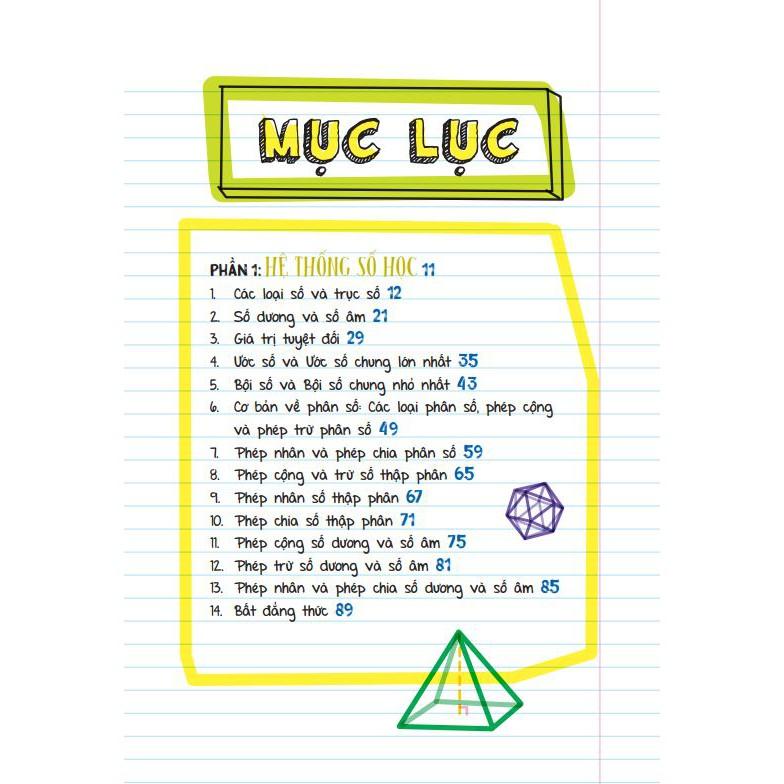 MỤC LỤC
PHẦN 1: HỆ THỐNG SỐ HỌC 11
1. Các loại số và trục số 12
2. Số dương và số âm 21
3. Giá trị tuyệt đối 29
4. Ước số và Ước số chung lớn nhất 35
5. Bội số và Bội số chung nhỏ nhất 43
6. Cơ bản về phân số: Các loại phân số, phép cộng
và phép trừ phân số 49
7. Phép nhân và phép chia phân số 59
8. Phép cộng và trừ số thập phân 65
9. Phép nhân số thập phân 67
10. Phép chia số thập phân 71
11. Phép cộng số dương và số âm 75
12. Phép trừ số dương và số âm 81
13. Phép nhân và phép chia số dương và số âm 85
14. Bất đẳng thức 89